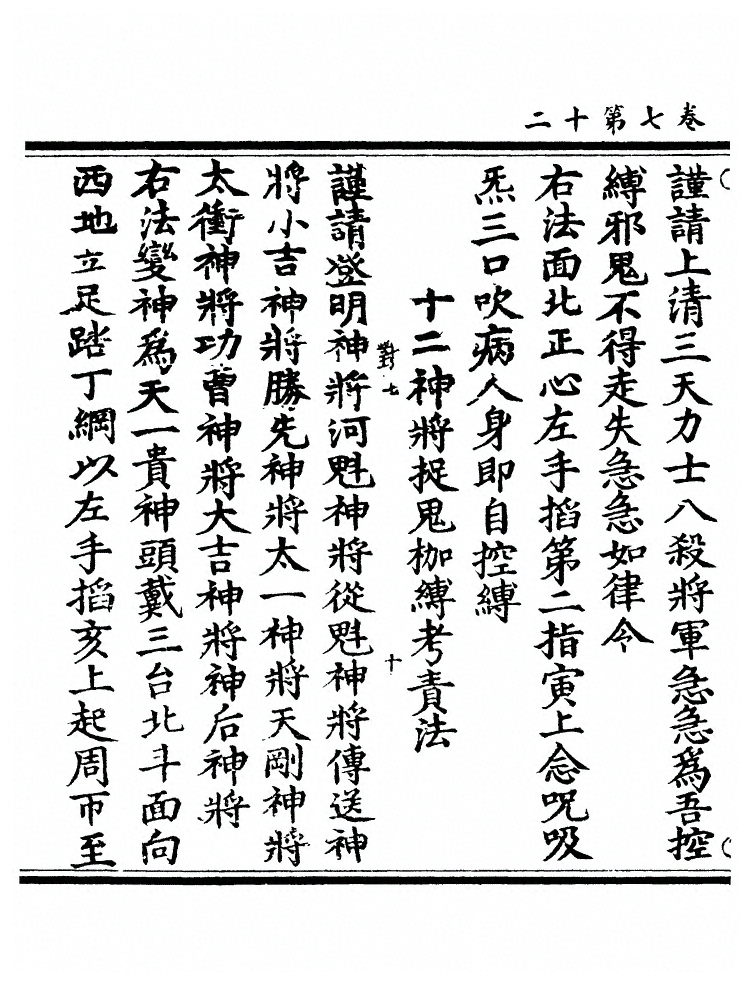 卷七第十二
謹請上清三天力士八殺將軍急急爲吾控
縛邪鬼不得走失急急如律令
右法面北正心左手搯第二指寅上念呪吸
炁三口吹病人身即自控縛
十二神將捉鬼枷縛考責法
對七 十
謹請登明神將河魁神將從魁神將傳送神
將小吉神將勝先神將太一神將天剛神將
太衝神將功曹神將大吉神將神后神將
右法變神爲天一貴神頭戴三台北斗面向
西地立足踏丁綱以左手搯亥上起周帀至